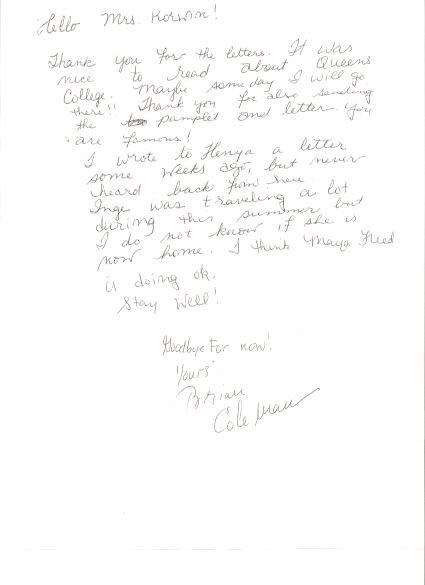 Hello Mrs. Korwin!
Thank you for the letters. It was
nice to read about Queens
College. Maybe someday I will go
there!! Thank you for also sending
the pamplet and letter you
are famous!
I wrote to Henya a letter
some weeks ago, but never
heard back from
Inge was traveling a lot
during this summer but
I do not know if she is
now home. I think Maya Freed
is doing ok.
Stay Well!
Goodbye For now!
Yours
Brian
Coleman